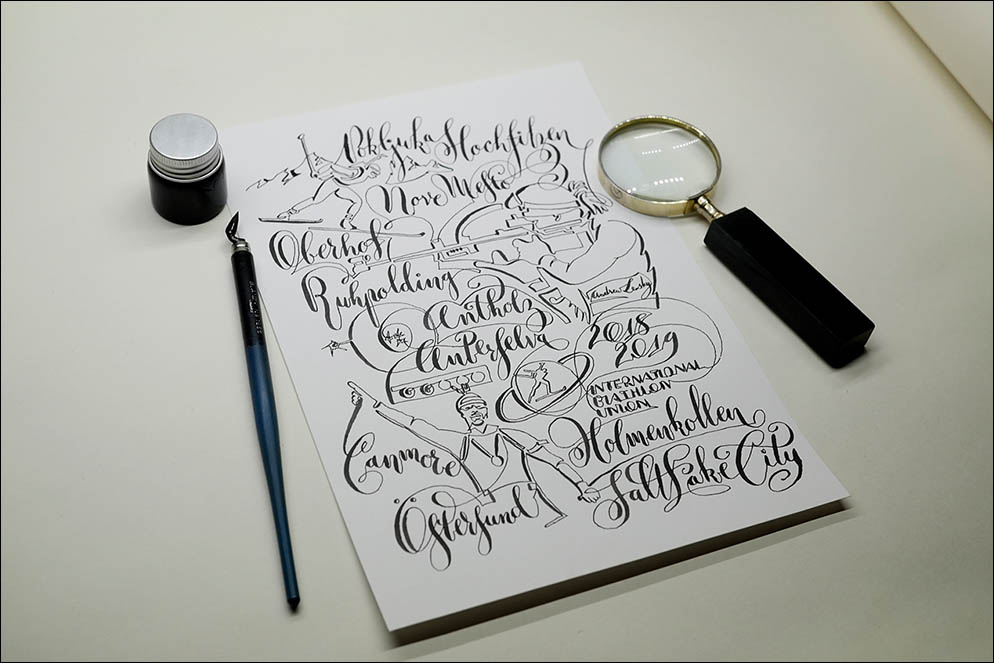 Pokljuka Hochfilzen
Nove Mesto
Oberhof
Ruhpolding
Antholz
Anterselva
2018
2019
INTERNATIONAL
BIATHLON
UNION
Holmenkollen
Canmore
Salt Lake City
Östersund